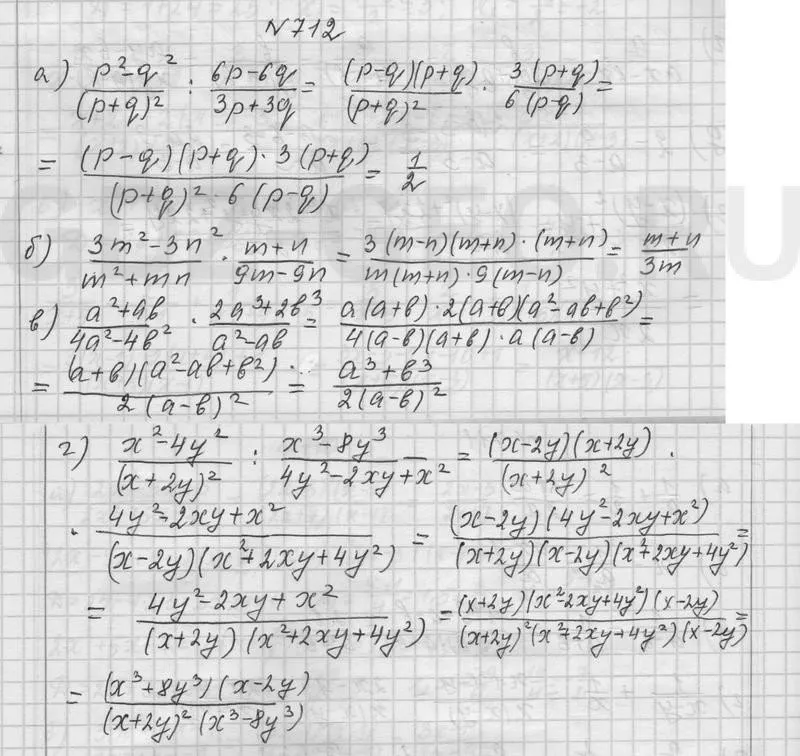 N712
а) (p²-q²)/(p+q)² : (6p-6q)/(3p+3q) = ((p-q)(p+q))/(p+q)² · (3(p+q))/(6(p-q)) =
= ((p-q)(p+q)·3(p+q))/((p+q)²·6(p-q)) = 1/2
б) (3m²-3n²)/(m²+mn) · (m+n)/(9m-9n) = (3(m-n)(m+n)·(m+n))/(m(m+n)·9(m-n)) = (m+n)/(3m)
в) (a²+ab)/(4a²-4b²) · (2a³+2b³)/(a²-ab) = (a(a+b)·2(a+b)(a²-ab+b²))/(4(a-b)(a+b)·a(a-b)) =
= ((a+b)(a²-ab+b²))/(2(a-b)²) = (a³+b³)/(2(a-b)²)
г) (x²-4y²)/(x+2y)² : (x³-8y³)/(4y²-2xy+x²) = ((x-2y)(x+2y))/(x+2y)² ·
· (4y²-2xy+x²)/((x-2y)(x²+2xy+4y²)) = ((x-2y)(4y²-2xy+x²))/((x+2y)(x-2y)(x²+2xy+4y²)) =
= (4y²-2xy+x²)/((x+2y)(x²+2xy+4y²)) = ((x+2y)(x²-2xy+4y²)(x-2y))/((x+2y)²(x²+2xy+4y²)(x-2y)) =
= ((x³+8y³)(x-2y))/((x+2y)²(x³-8y³))